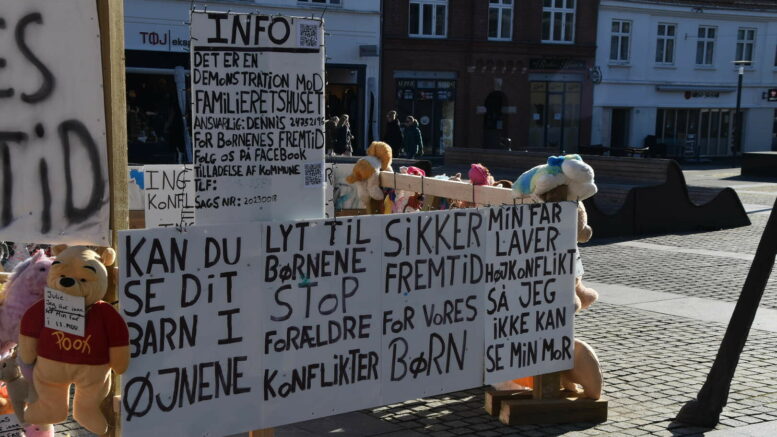 TØJ
ES
TiD
INFO
DET ER EN
DEMONSTRATION MOD
FAMILIERETSHUSET
ANSVARLIG: DENNIS
FOR BØRNENES FREMTID
FØLG OS PÅ FACEBOOK
TILLADELSE AF KOMMUNE
TLF:
SAGS NR: 20230018
ING
KAN DU
SE DIT
BARN I
ØJNENE
LYT TIL
BØRNENE
STOP
FORÆLDRE
KONFLIKTER
SIKKER
FREMTID
FOR VORES
BØRN
MIN FAR
LAVER
HØJKONFLIKT
SÅ JEG
IKKE KAN
SE MIN MOR
Julie:
POOH